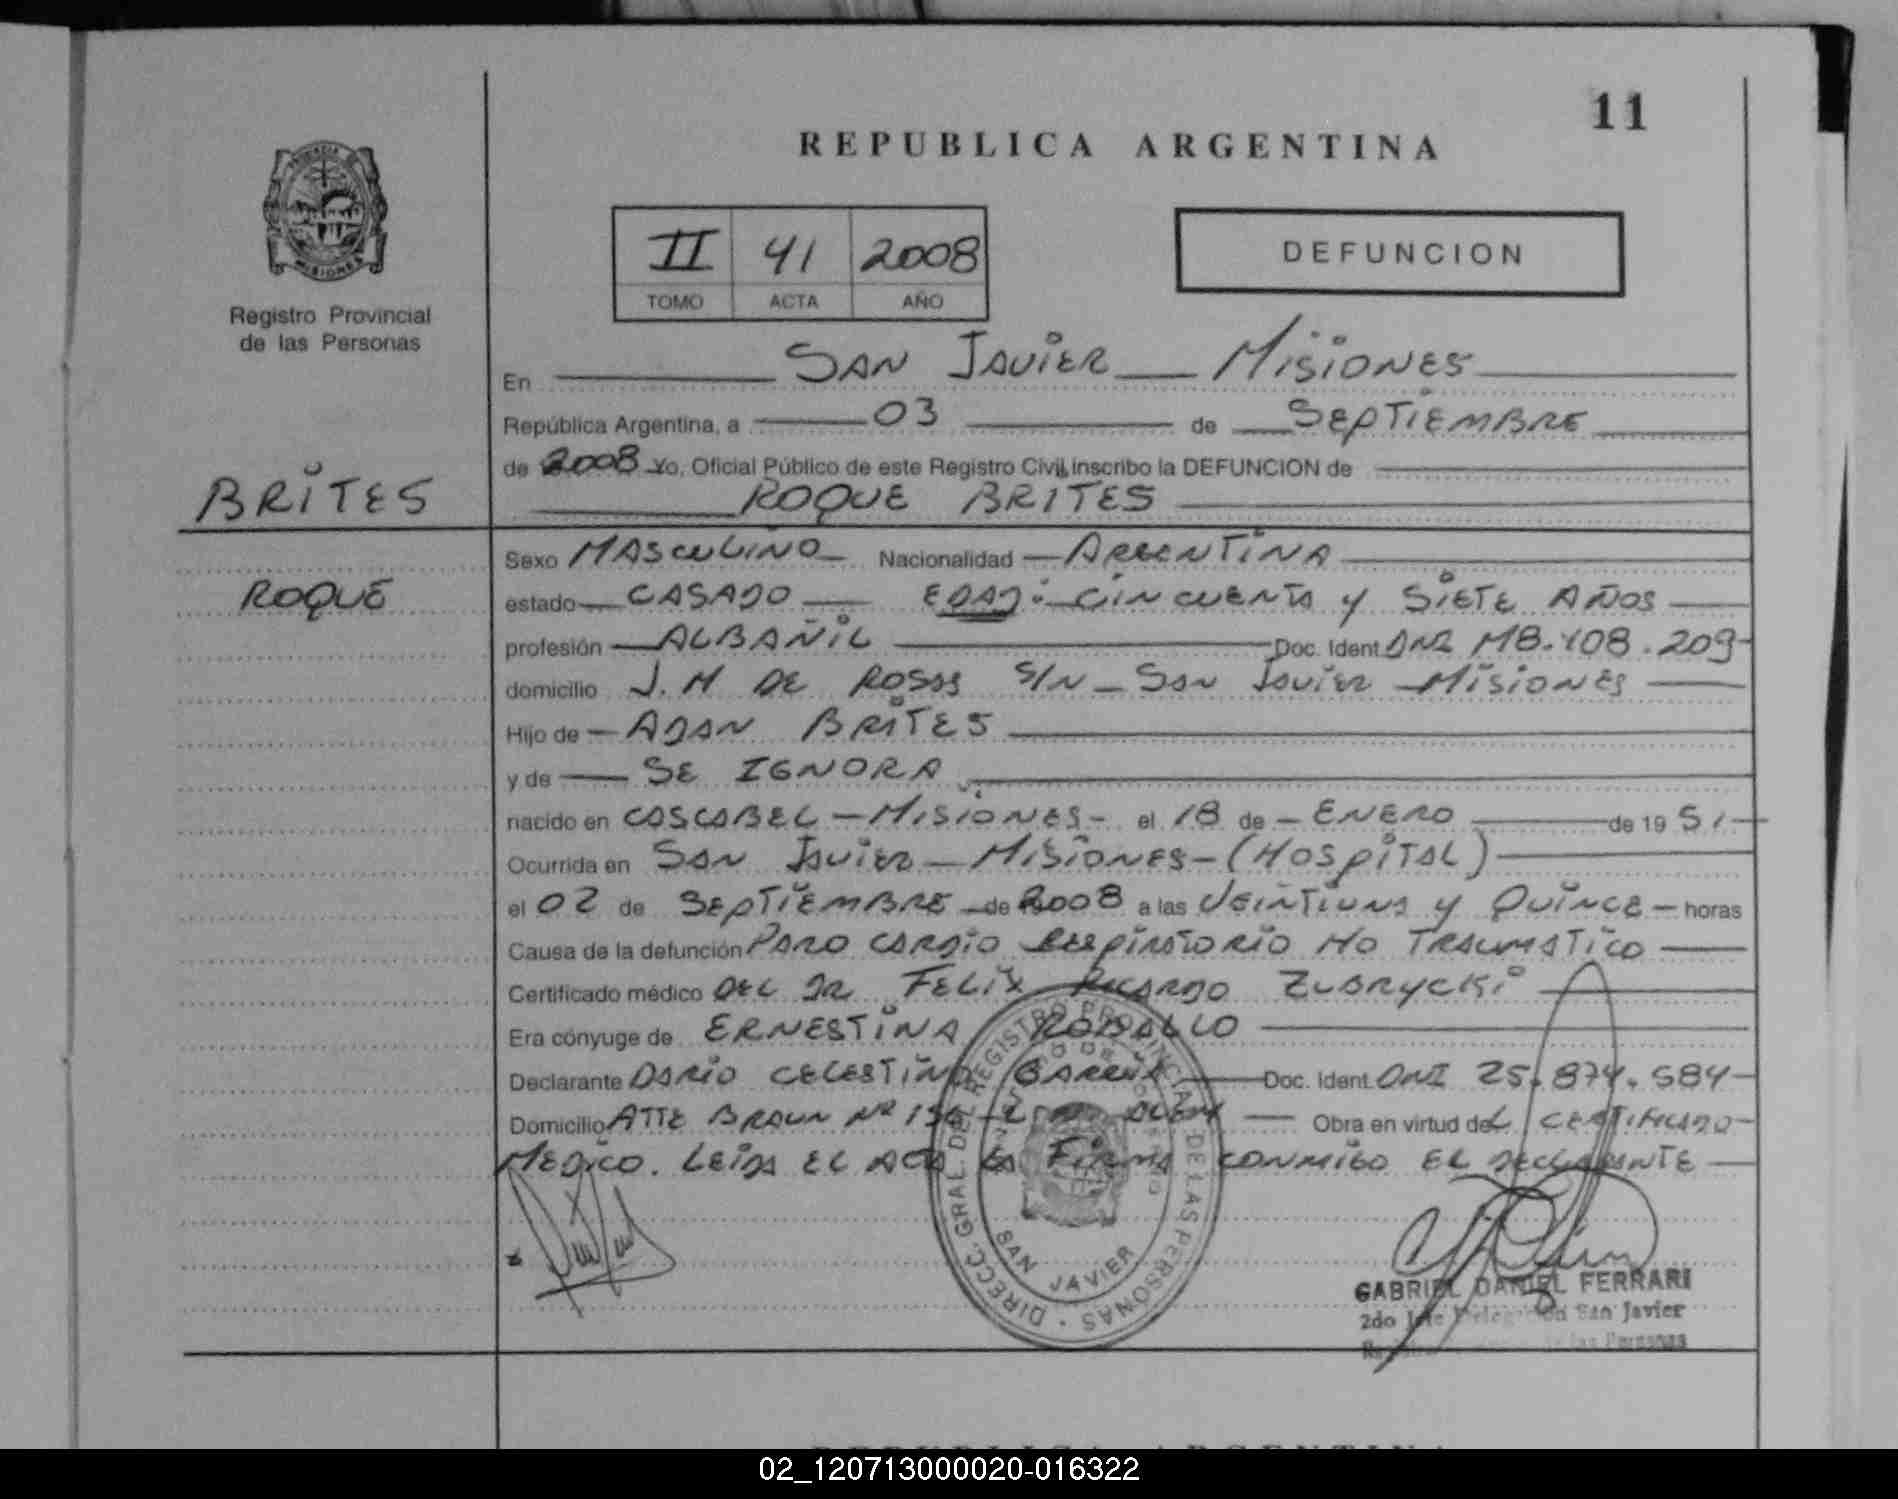 11
REPUBLICA ARGENTINA
PROVINCIA DE
MISIONES
Registro Provincial
de las Personas
II 41 2008
TOMO ACTA AÑO
DEFUNCION
En SAN JAVIER MISIONES
República Argentina, a 03 de SEPTIEMBRE
de 2008 Yo, Oficial Público de este Registro Civil, inscribo la DEFUNCION de
BRITES
ROQUE BRITES
Sexo MASCULINO Nacionalidad ARGENTINA
ROQUE
estado CASADO EDAD: CINCUENTA Y SIETE AÑOS
profesión ALBAÑIL Doc. Ident. DNI M8.108.209
domicilio J. M DE ROSAS S/N - SAN JAVIER - MISIONES
Hijo de ADAN BRITES
y de SE IGNORA
nacido en CASCABEL - MISIONES - el 18 de ENERO de 19 51
Ocurrida en SAN JAVIER - MISIONES - (HOSPITAL)
el 02 de SEPTIEMBRE de 2008 a las VEINTIUNA Y QUINCE horas
Causa de la defunción PARO CARDIO RESPIRATORIO NO TRAUMATICO
Certificado médico DEL DR FELIX RICARDO ZUBRYCKI
Era cónyuge de ERNESTINA
Declarante DARIO CELESTINO Doc. Ident. DNI 25.874.584
Domicilio ATTE BROWN Nº Obra en virtud de L CERTIFICADO
MEDICO. LEIDA EL ACTA LA FIRMA CONMIGO EL DECLARANTE
DIRECC. GRAL. DEL REGISTRO PROVINCIAL DE LAS PERSONAS
SAN JAVIER
GABRIEL DANIEL FERRARI
2do Jefe Delegación San Javier
de las Personas
REPUBLICA ARGENTINA
02_120713000020-016322